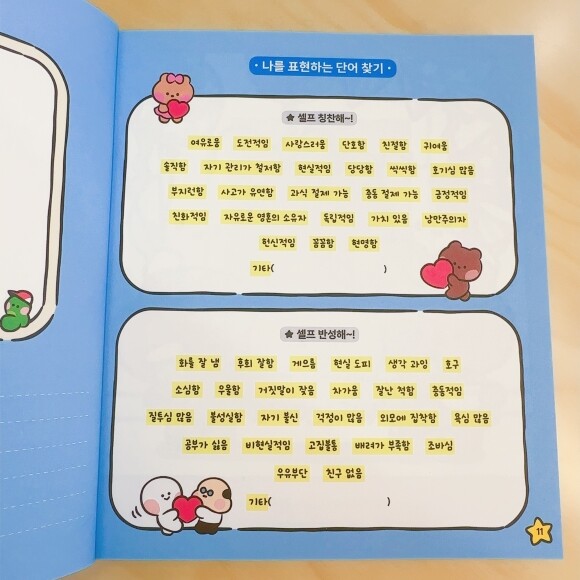 • 나를 표현하는 단어 찾기 •
★ 셀프 칭찬해~!
여유로움 도전적임 사랑스러움 단호함 친절함 귀여움
솔직함 자기 관리가 철저함 현실적임 당당함 씩씩함 호기심 많음
부지런함 사고가 유연함 과식 절제 가능 충동 절제 가능 긍정적임
친화적임 자유로운 영혼의 소유자 독립적임 가치 있음 낭만주의자
헌신적임 꼼꼼함 현명함
기타( )
★ 셀프 반성해~!
화를 잘 냄 후회 잘함 게으름 현실 도피 생각 과잉 호구
소심함 우울함 거짓말이 잦음 차가움 잘난 척함 충동적임
질투심 많음 불성실함 자기 불신 걱정이 많음 외모에 집착함 욕심 많음
공부가 싫음 비현실적임 고집불통 배려가 부족함 조바심
우유부단 친구 없음
기타( )
11